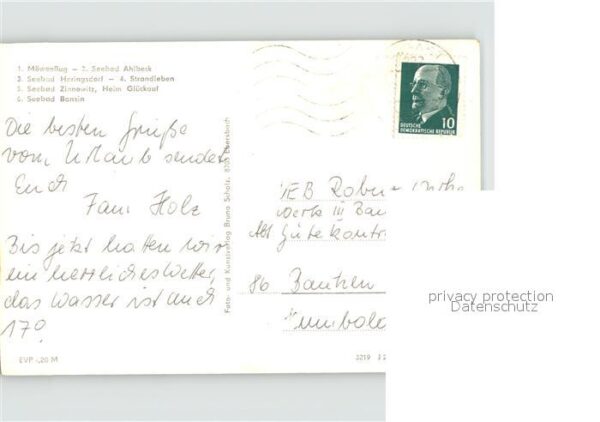 1. Möwenflug – 2. Seebad Ahlbeck
3. Seebad Heringsdorf – 4. Strandleben
5. Seebad Zinnowitz, Heim Glückauf
6. Seebad Bansin
Die besten Grüße
vom Urlaub sendet
Euch
Fam. Holz
Bis jetzt hatten wir
ein herrliches Wetter,
das Wasser ist auch
17°
EVP -,20 M
Foto- und Kunstverlag Bruno Scholz, Ebersbach
10
DEUTSCHE
DEMOKRATISCHE REPUBLIK
VEB Robur
Werk III Bau
Abt. Gütekontr
86 Bautzen
Humbold
3219
privacy protection
Datenschutz